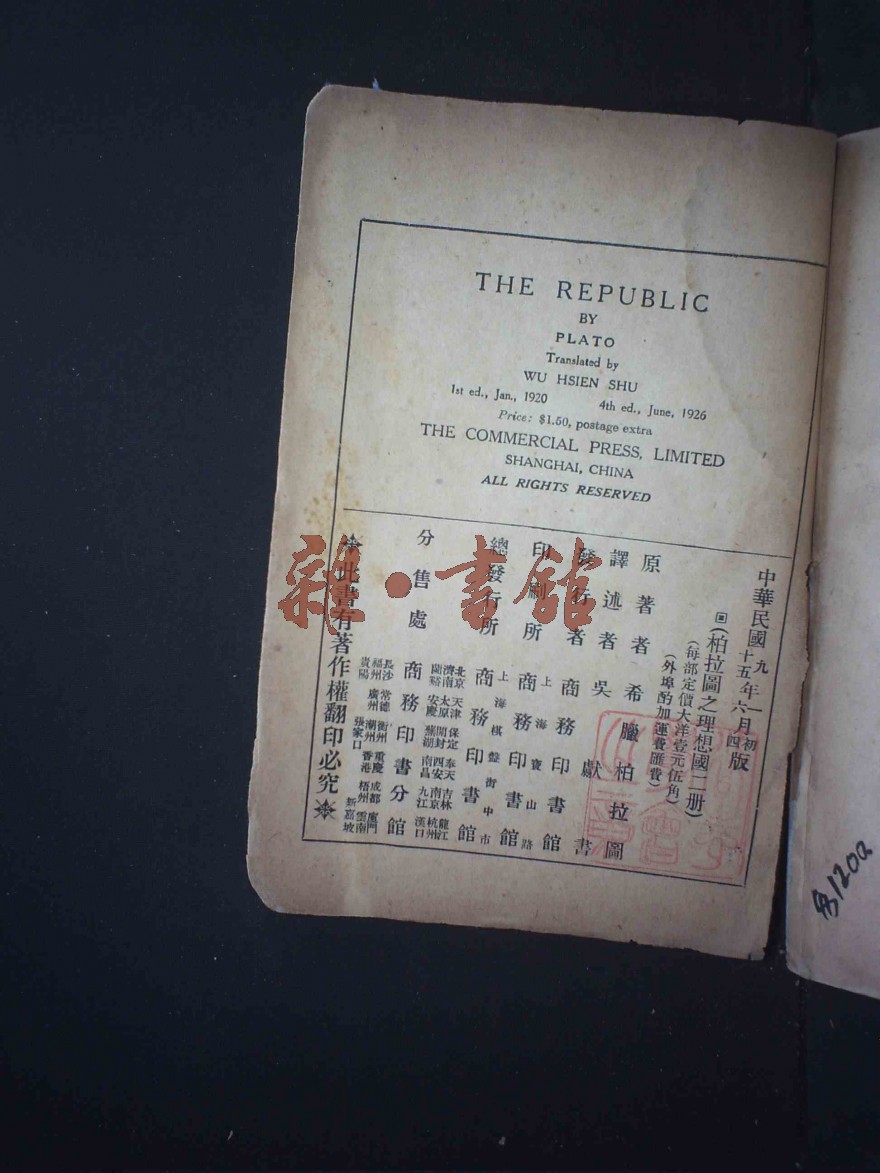 THE REPUBLIC
BY
PLATO
Translated by
WU HSIEN SHU
1st ed., Jan., 1920 4th ed., June, 1926
Price: $1.50, postage extra
THE COMMERCIAL PRESS, LIMITED
SHANGHAI, CHINA
ALL RIGHTS RESERVED
中華民國九年一月初版
十五年六月四版
(柏拉圖之理想國二册)
(每部定價大洋壹元伍角)
(外埠酌加運費匯費)
原著者 希臘柏拉圖
譯述者 吳獻書
發行者 商務印書館
印刷所 上海寶山路 商務印書館
總發行所 上海棋盤街中市 商務印書館
分售處 商務印書分館
北京 天津 保定 奉天 吉林 龍江
濟南 太原 開封 西安 南京 杭州
蘭谿 安慶 蕪湖 南昌 九江 漢口
長沙 常德 衡州 重慶 成都 廈門
福州 廣州 潮州 香港 梧州 雲南
貴陽 張家口 新嘉坡
此書有著作權翻印必究
雜·書館
1200